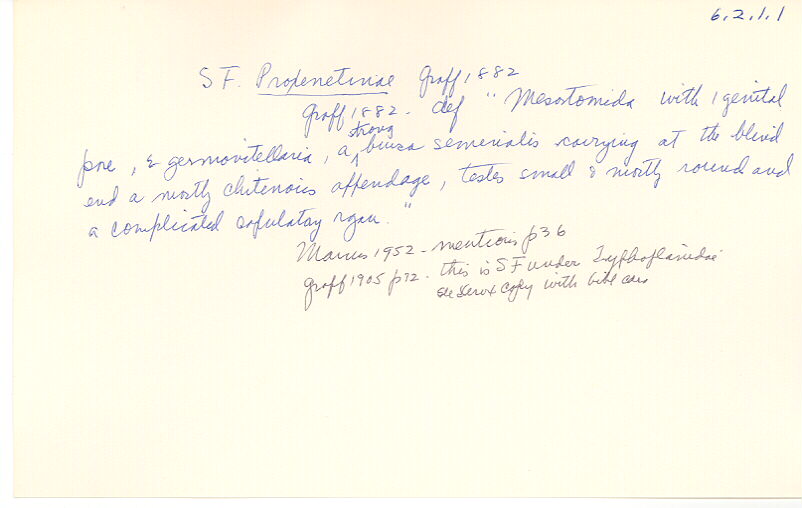 6.2.1.1
S F. Proxenetinae Graff 1882
Graff 1882 - def "Mesostomida with 1 genital
strong
pore, & germovitellaria, a bursa seminalis carrying at the blind
end a mostly chitenous appendage, testes small & mostly round and
a complicated copulatory organ."
Marcus 1952 - mentions p 36
Graff 1905 p 72 - this is S F under Typhloplanidae
see Xerox copy with bibl card